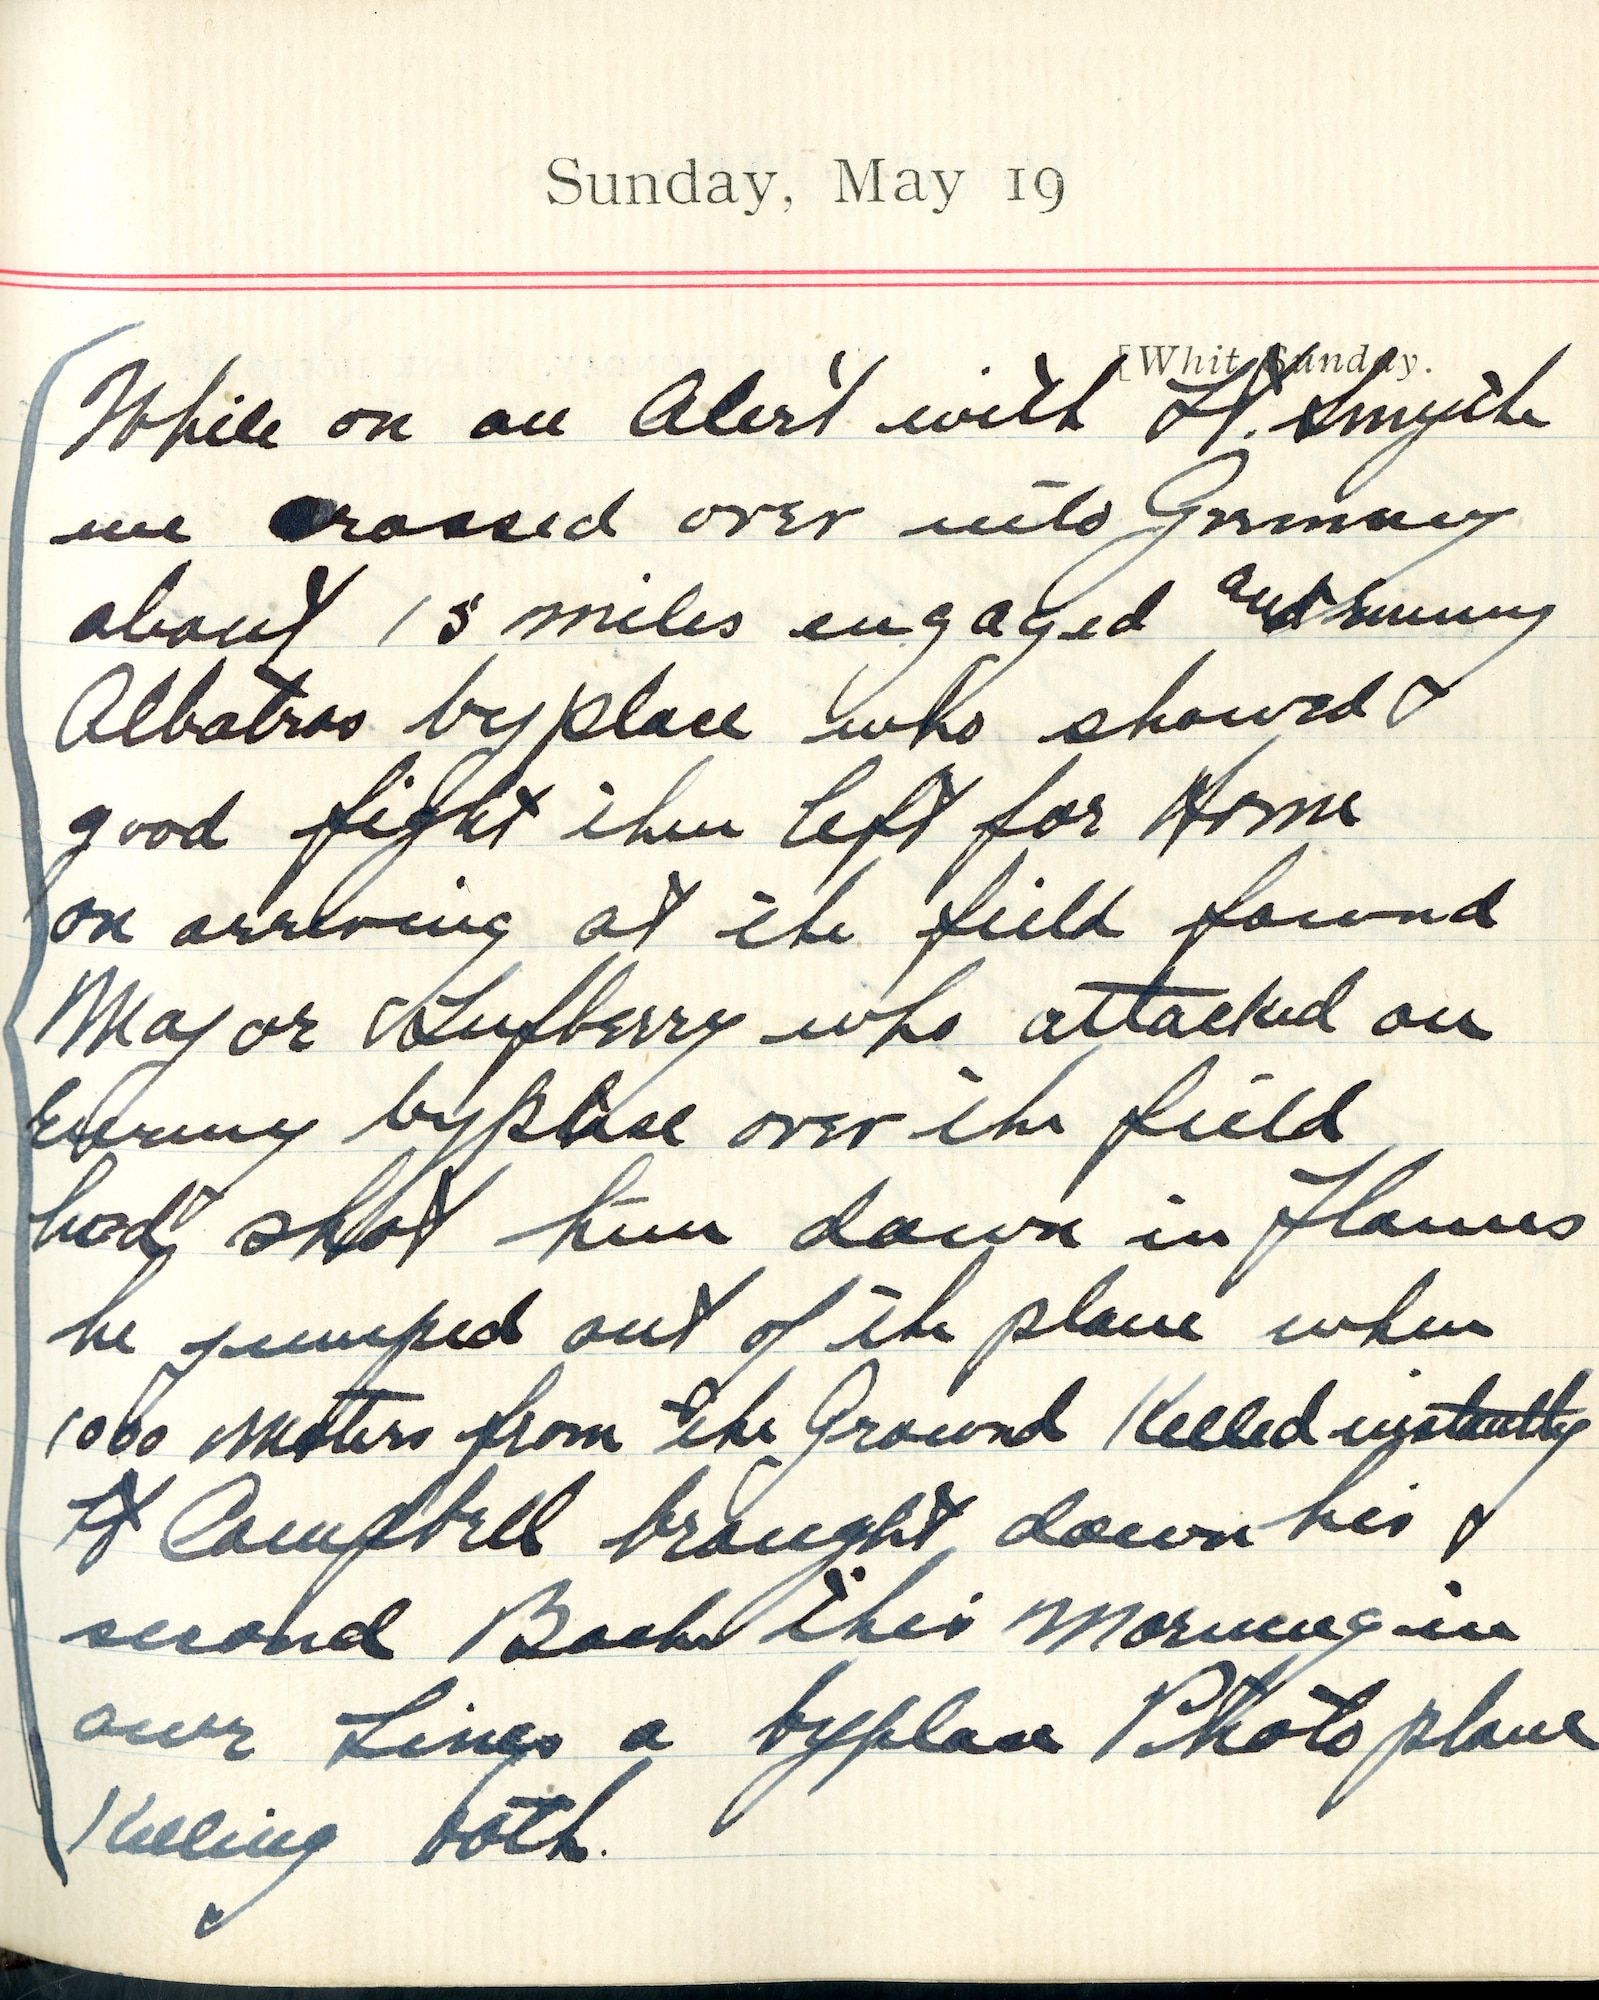 Sunday, May 19
[Whit Sunday.
While on an Alert with Lt. Smythe
we crossed over into Germany
about 15 miles engaged an enemy
Albatros byplane who showed
good fight then left for Home
on arriving at the field found
Major Lufberry who attacked an
Enemy byplane over the field
had shot him down in Flames
he jumped out of the plane when
1000 Meters from the Ground Killed instantly
Lt Campbell brought down his
second Boche this Morning in
our Lines a byplane Photo plane
Killing both.